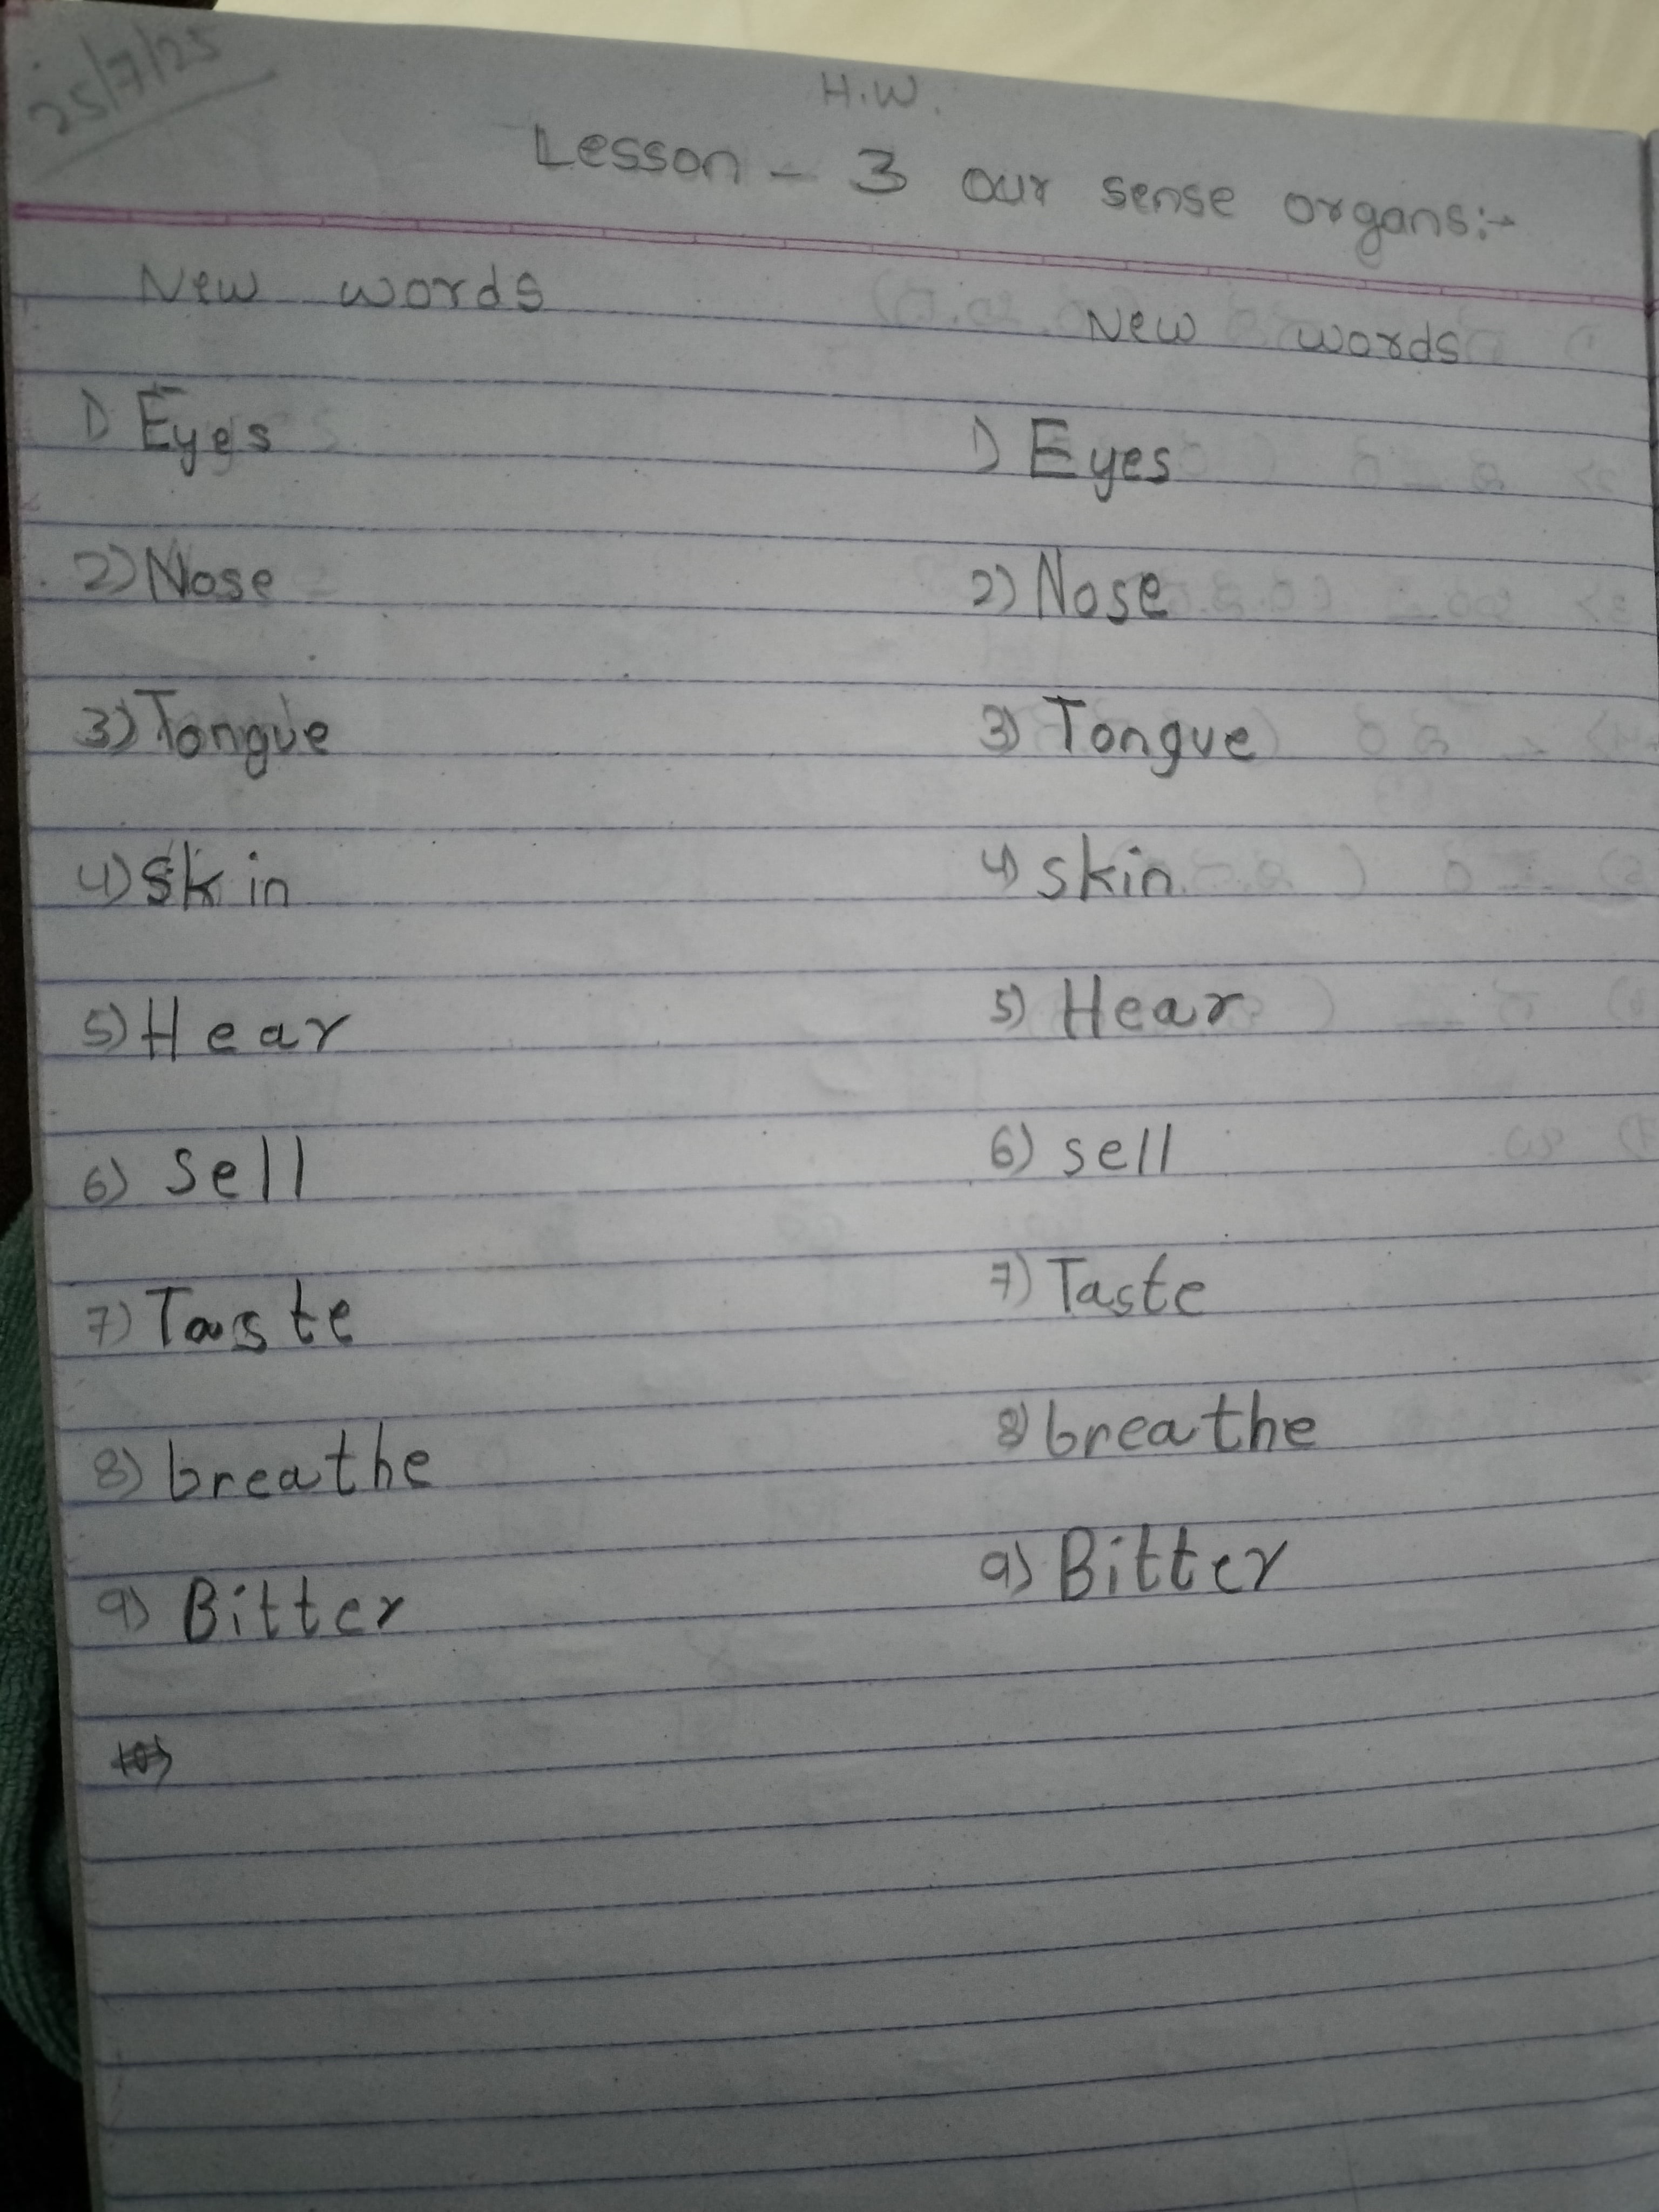 25/7/25
H.W.
Lesson - 3 our sense organs:-
New words New words
1) Eyes 1) Eyes
2) Nose 2) Nose
3) Tongue 3) Tongue
4) skin 4) skin
5) Hear 5) Hear
6) sell 6) sell
7) Taste 7) Taste
8) breathe 8) breathe
9) Bitter 9) Bitter